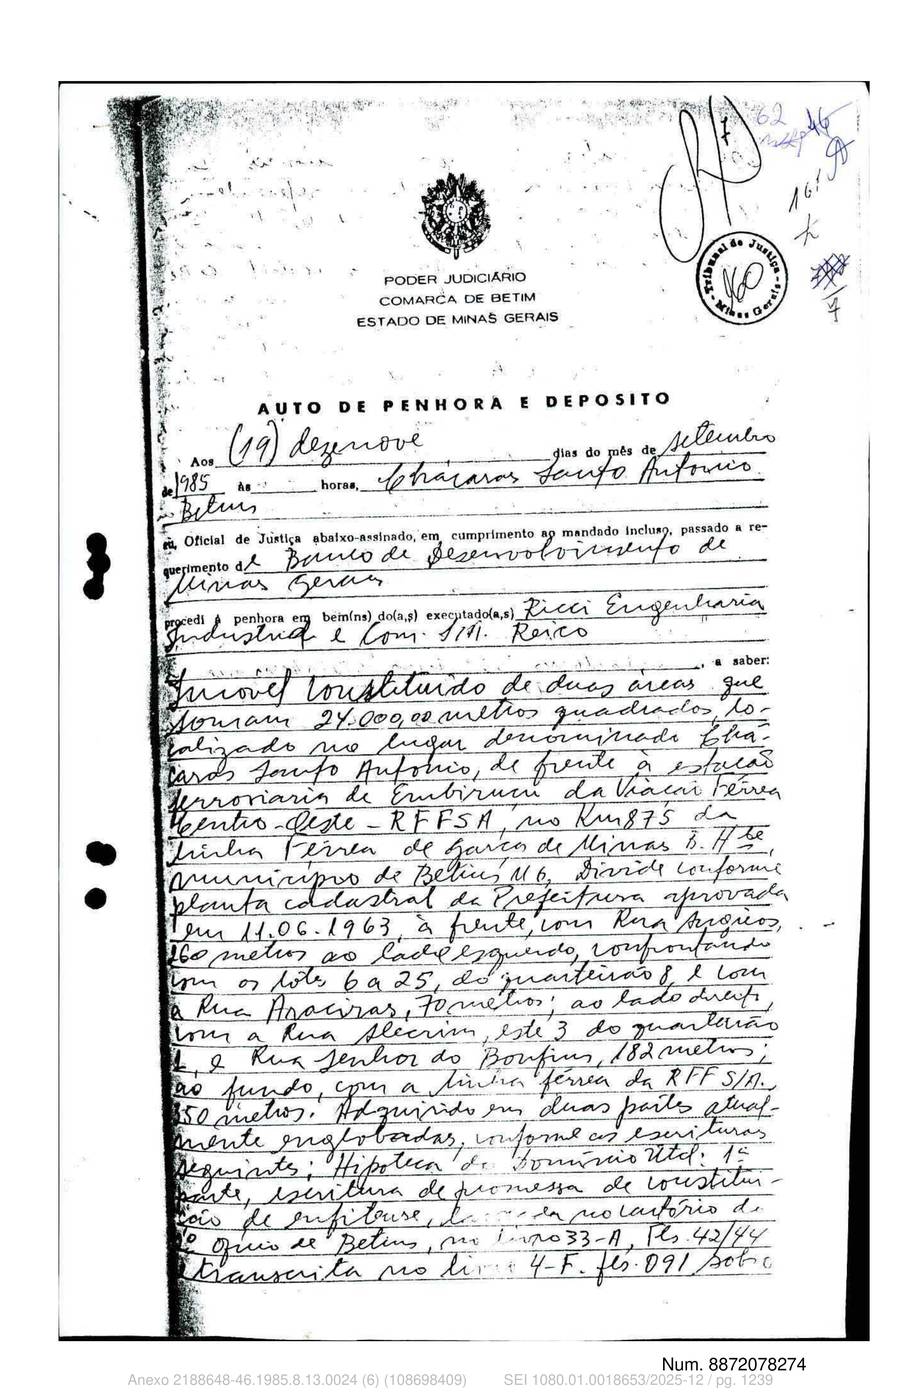 62
46
161
Tribunal de Justiça
160
Minas Gerais
7
PODER JUDICIÁRIO
COMARCA DE BETIM
ESTADO DE MINAS GERAIS
AUTO DE PENHORA E DEPOSITO
Aos (19) dezenove dias do mês de setembro
de 1985 às horas, Chácaras Santo Antonio
Betim
eu, Oficial de Justiça abaixo-assinado, em cumprimento ao mandado incluso, passado a re-
querimento de Banco de Desenvolvimento de
Minas Gerais
procedi à penhora em bem(ns) do(a,s) executado(a,s) Ricci Engenharia
Industrial e Com. S/A. Reico
, a saber:
Imóvel constituído de duas áreas que
somam 24.000,00 metros quadrados, lo-
calizado no lugar denominado Chá-
caras Santo Antonio, de frente à estação
ferroviaria de Embiruçu da Viação Férrea
Centro-Oeste - RFFSA, no Km 875 da
linha Férrea de Garça de Minas B. Hte,
município de Betim MG, Divide conforme
planta cadastral da Prefeitura aprovada
em 11.06.1963, à frente, com Rua
260 metros ao lado esquerdo, confrontando
com os lotes 6 a 25, do quarteirão 8, e com
a Rua 70 metros; ao lado direito,
com a Rua Alecrim, este 3 do quarteirão
1, e Rua Senhor do Bonfim, 182 metros;
ao fundo, com a linha férrea da RFFS/A.
350 metros. Adquirido em duas partes atual-
mente englobadas, conforme as escrituras
seguintes: Hipoteca do Domínio Util: 1ª
parte, escritura de promessa de constitui-
ção de enfiteuse, no cartório do
2º ofício de Betim, no livro 33-A, Fls. 42/44
transcrita no livro 4-F. fls. 091 sob o
Num. 8872078274
Anexo 2188648-46.1985.8.13.0024 (6) (108698409) SEI 1080.01.0018653/2025-12 / pg. 1239